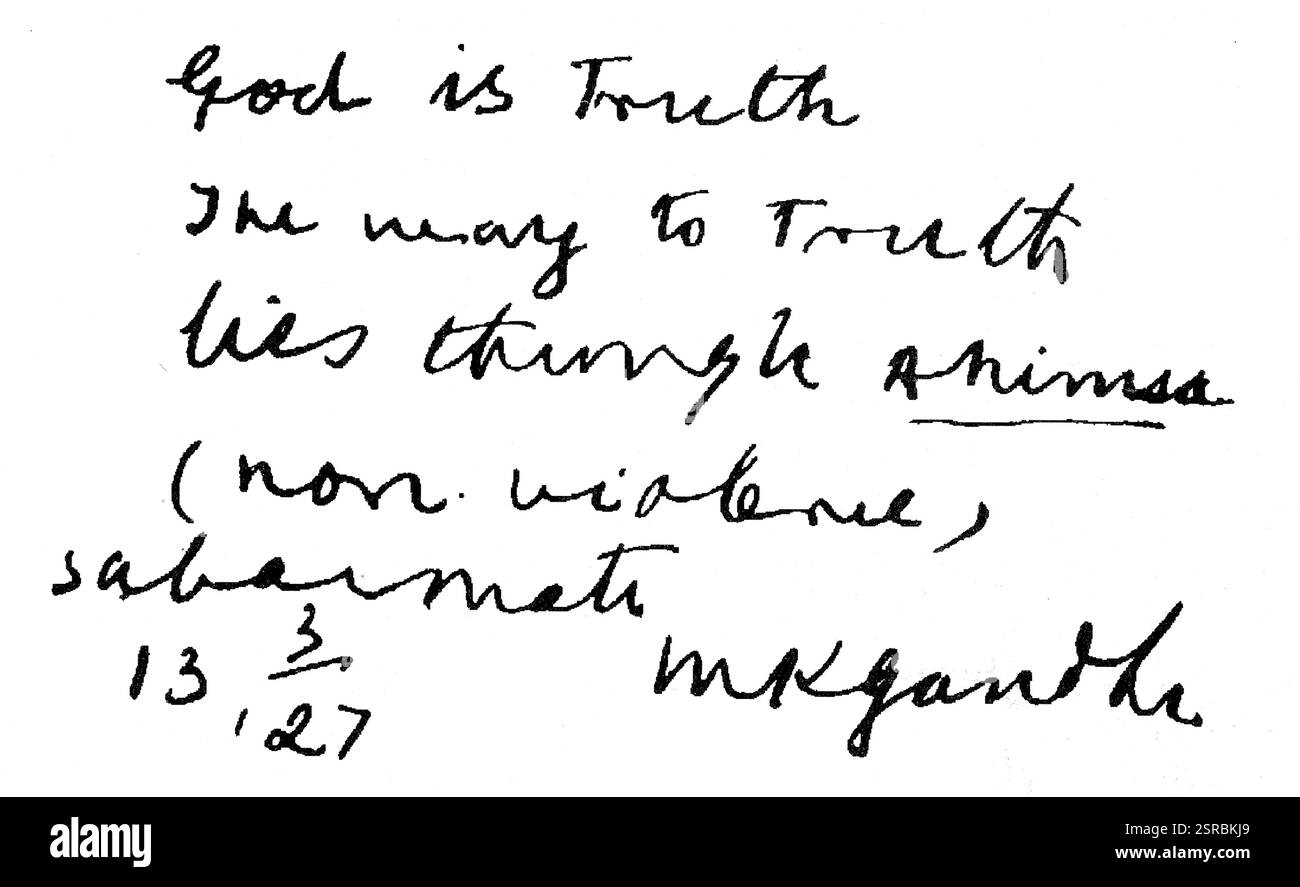 God is Truth
The way to Truth
lies through Ahimsa
(non-violence)
Sabarmati
13 3/27
MKGandhi
alamy
Image ID: 2SRBKJ9
www.alamy.com